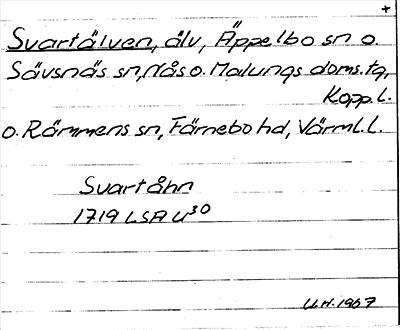 +
Svartälven, älv, Äppelbo sn o.
Sävsnäs sn, Nås o. Malungs doms.tg,
Kopp.l.
o. Rämmens sn, Färnebo hd, Värml.l.
Svartåhn
1719 LSA U³⁰
U.H. 1967